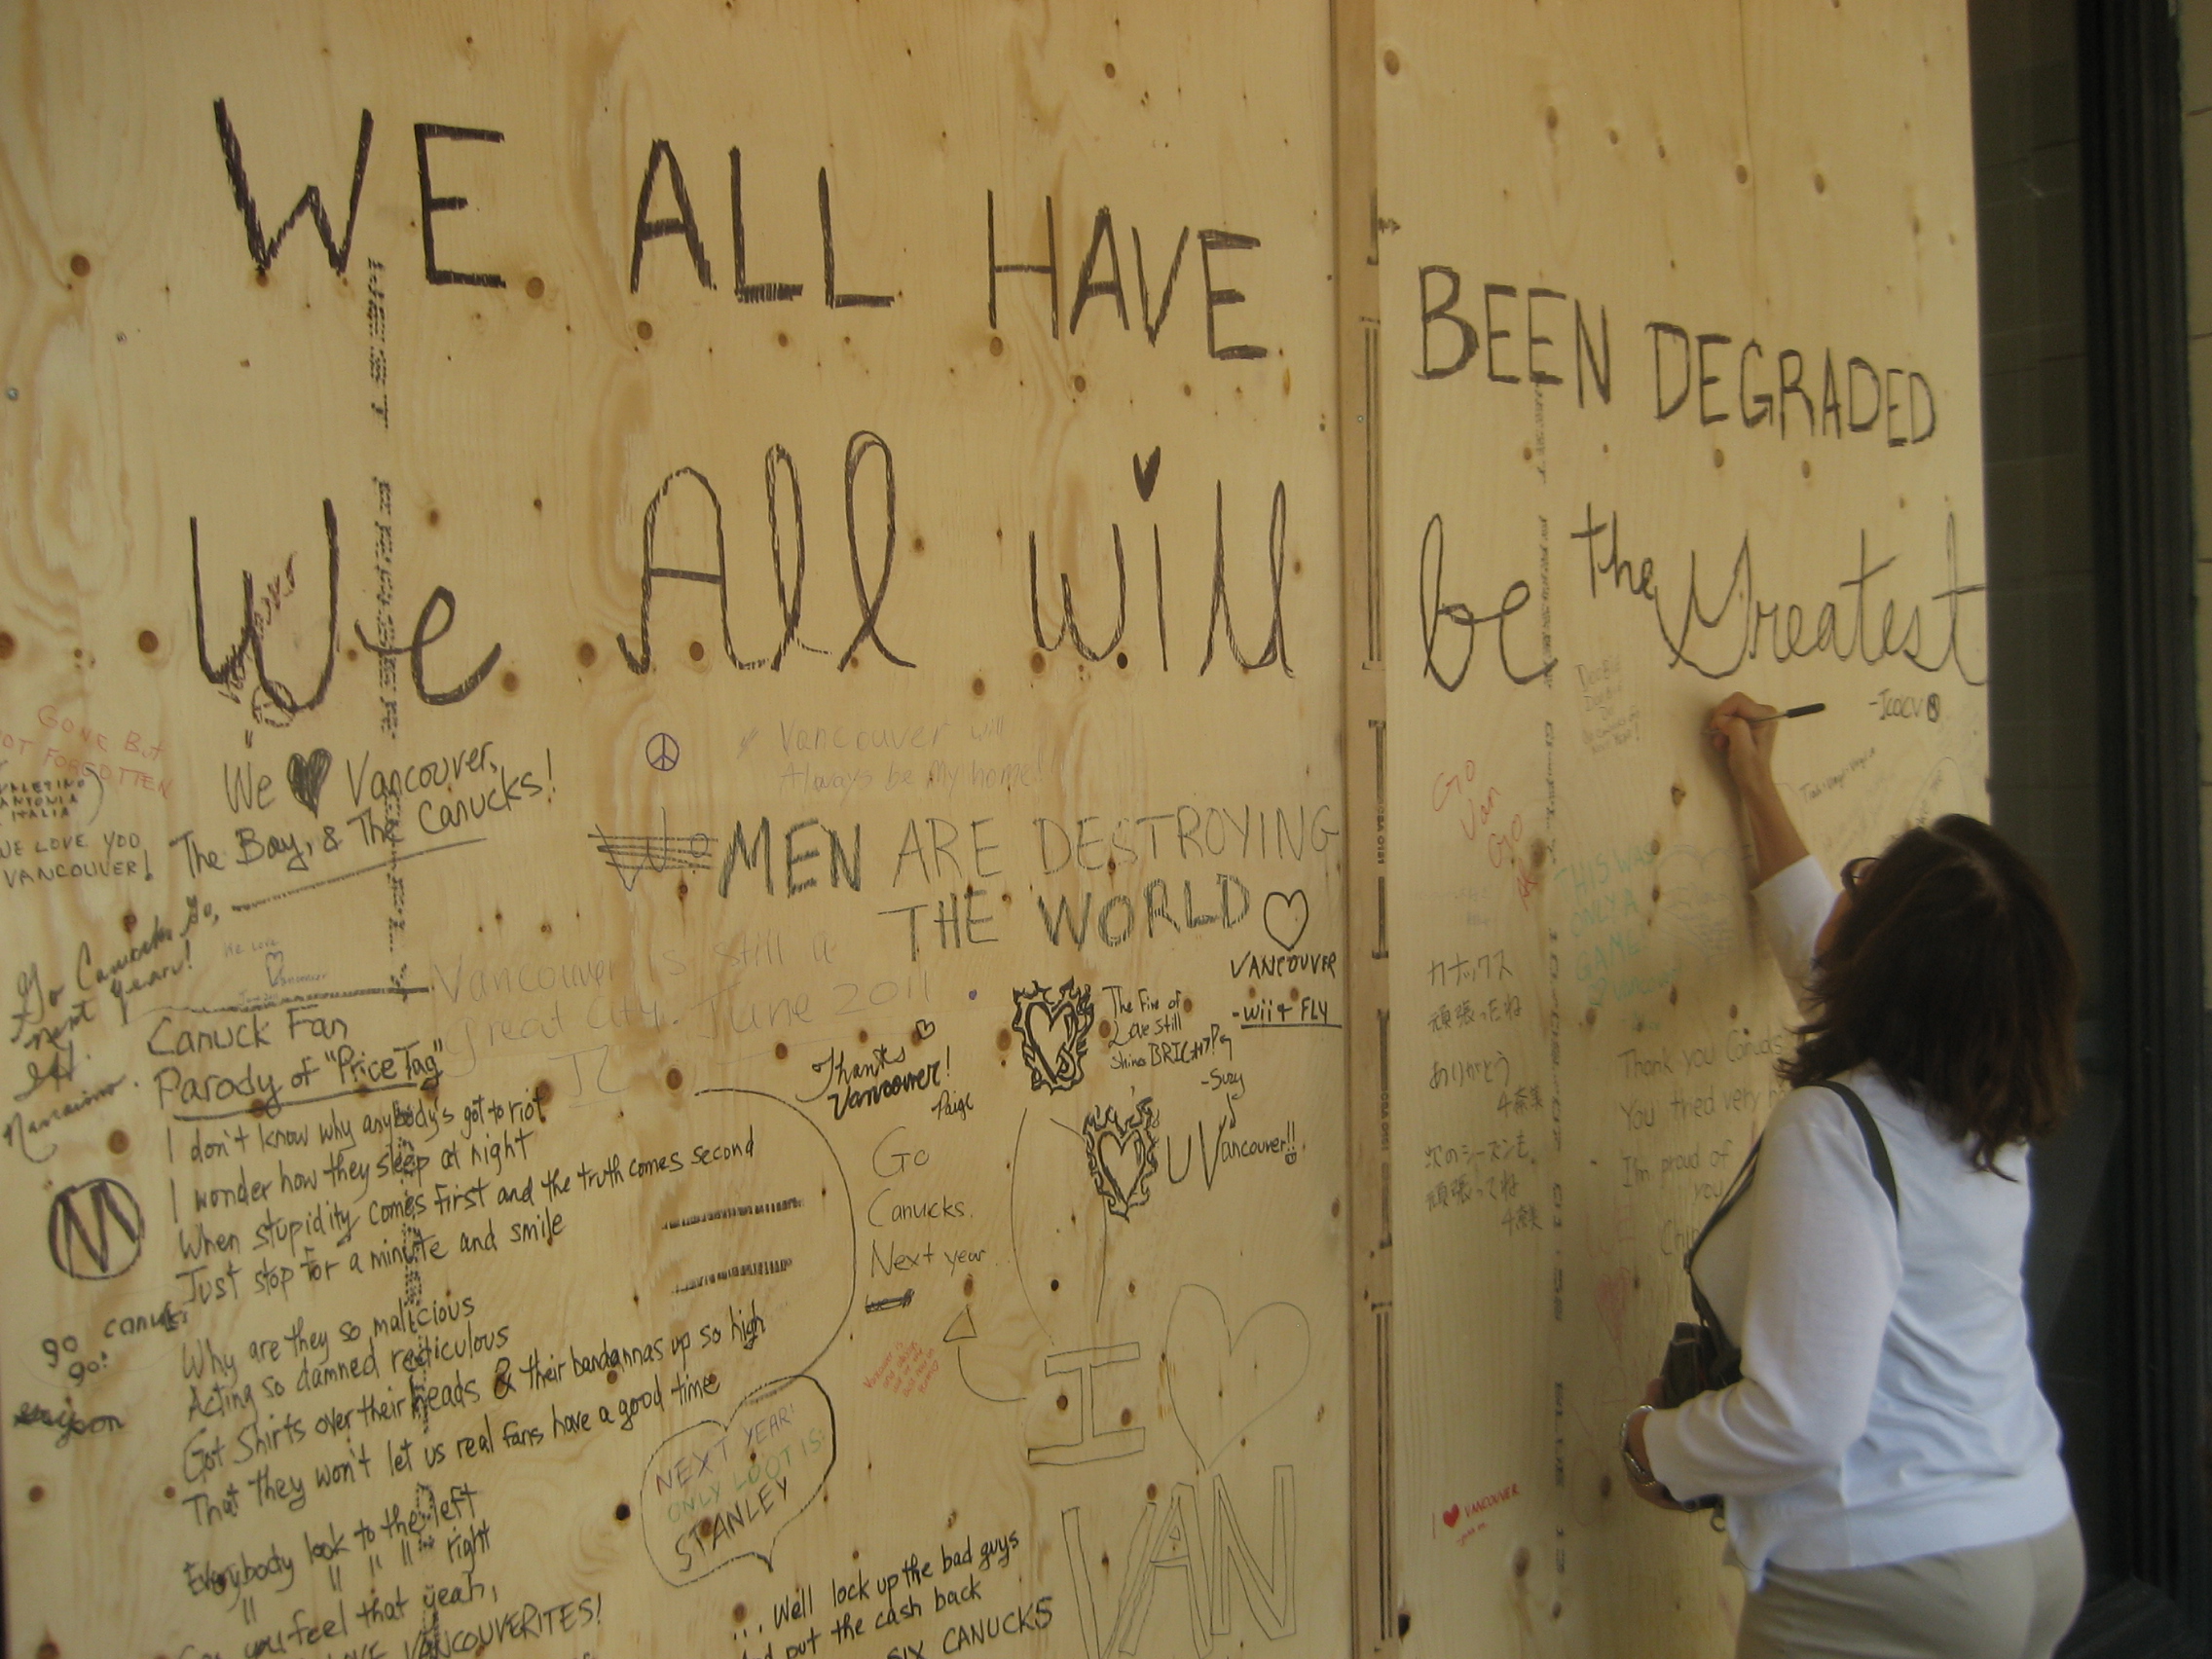 WE ALL HAVE BEEN DEGRADED
We All will be the Greatest
GONE BUT
FORGOTTEN
ANTONIA
ITALIA
WE LOVE YOU
VANCOUVER!
We ♥ Vancouver,
The Bay, & The Canucks!
Go Canucks Go,
next year!
Nanaimo.
We love
Vancouver
Vancouver will
Always be my home!
WoMEN ARE DESTROYING
THE WORLD
♡
VANCOUVER
-Wii & FLY
Vancouver is still a
great city. June 2011
The Fire of
Love Still
Shine BRIGHT
-Suzy
U Vancouver!!
Thanks
Vancouver!
Paige
Canuck Fan
Parody of "Price Tag"
I don't know why anybody's got to riot
I wonder how they sleep at night
When stupidity comes first and the truth comes second
Just stop for a minute and smile
Why are they so malicious
Acting so damned rediculous
Got Shirts over their heads & their bandannas up so high
That they won't let us real fans have a good time
Everybody look to the left
" " " " right
you feel that yeah,
LOVE VANCOUVERITES!
M
go canucks
go!
Go
Canucks
Next year
NEXT YEAR!
ONLY LOOT IS:
STANLEY
I ♡
VAN
... We'll lock up the bad guys
put the cash back
SIX CANUCKS
-JCOCV
GO
Van
GO
THIS WAS
ONLY A
GAME!
カナックス
頑張ったね
ありがとう
4奈美
次のシーズンも
頑張ってね
4奈美
Thank you Canucks
You tried very
I'm proud of
you
I ♥ VANCOUVER